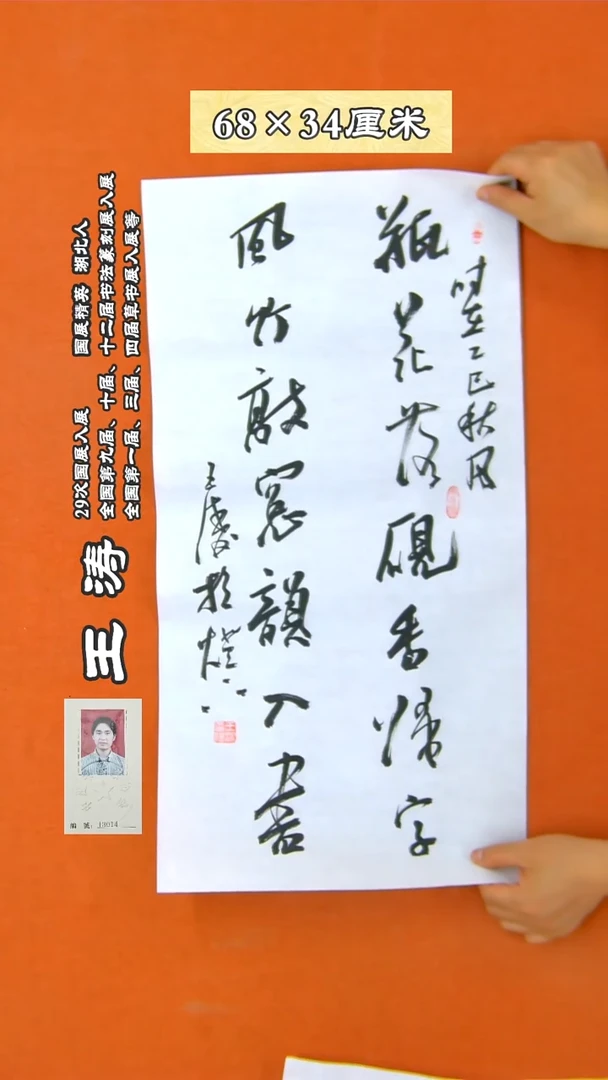 68×34厘米
时在乙巳秋月
瓶花落砚香归字
風竹敲窓韻入書
王涛於燈下
王涛
29次国展入展 国展精英 湖北人
全国第九届、十届、十二届书法篆刻展入展
全国第一届、三届、四届草书展入展等
编 号：13014